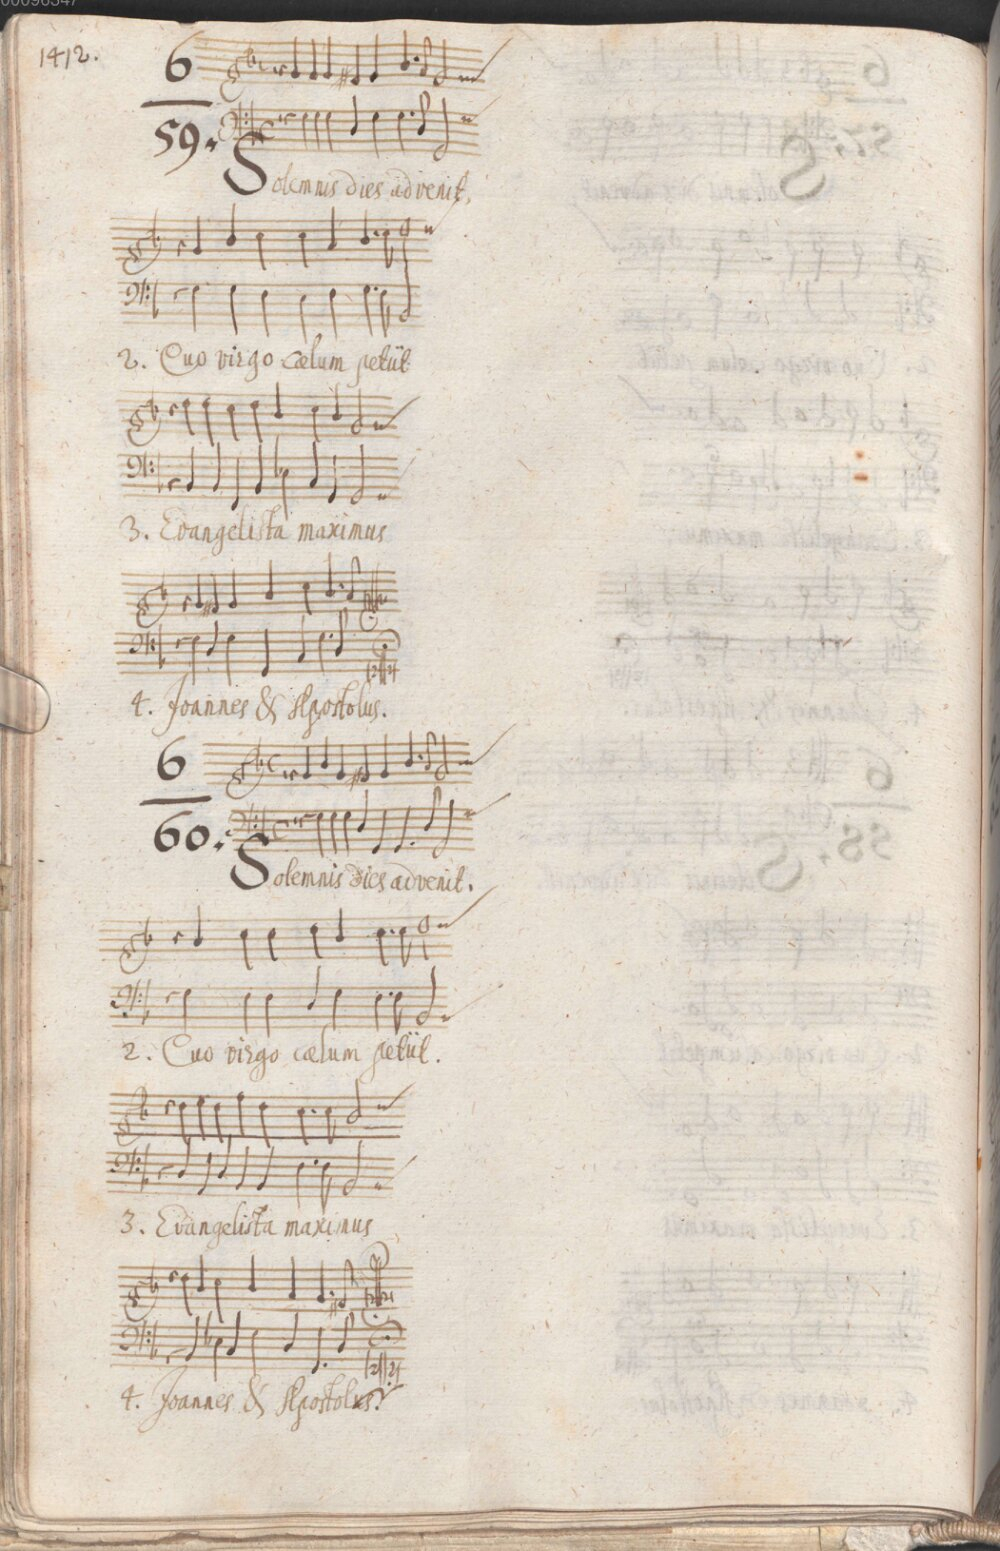 00096347
1412.
6
59.
Solemnis dies advenit,
2. Quo virgo cælum petiit
3. Evangelista maximus
4. Joannes & Apostolus.
6
60.
Solemnis dies advenit.
2. Quo virgo cælum petiit.
3. Evangelista maximus
4. Joannes & Apostolus.